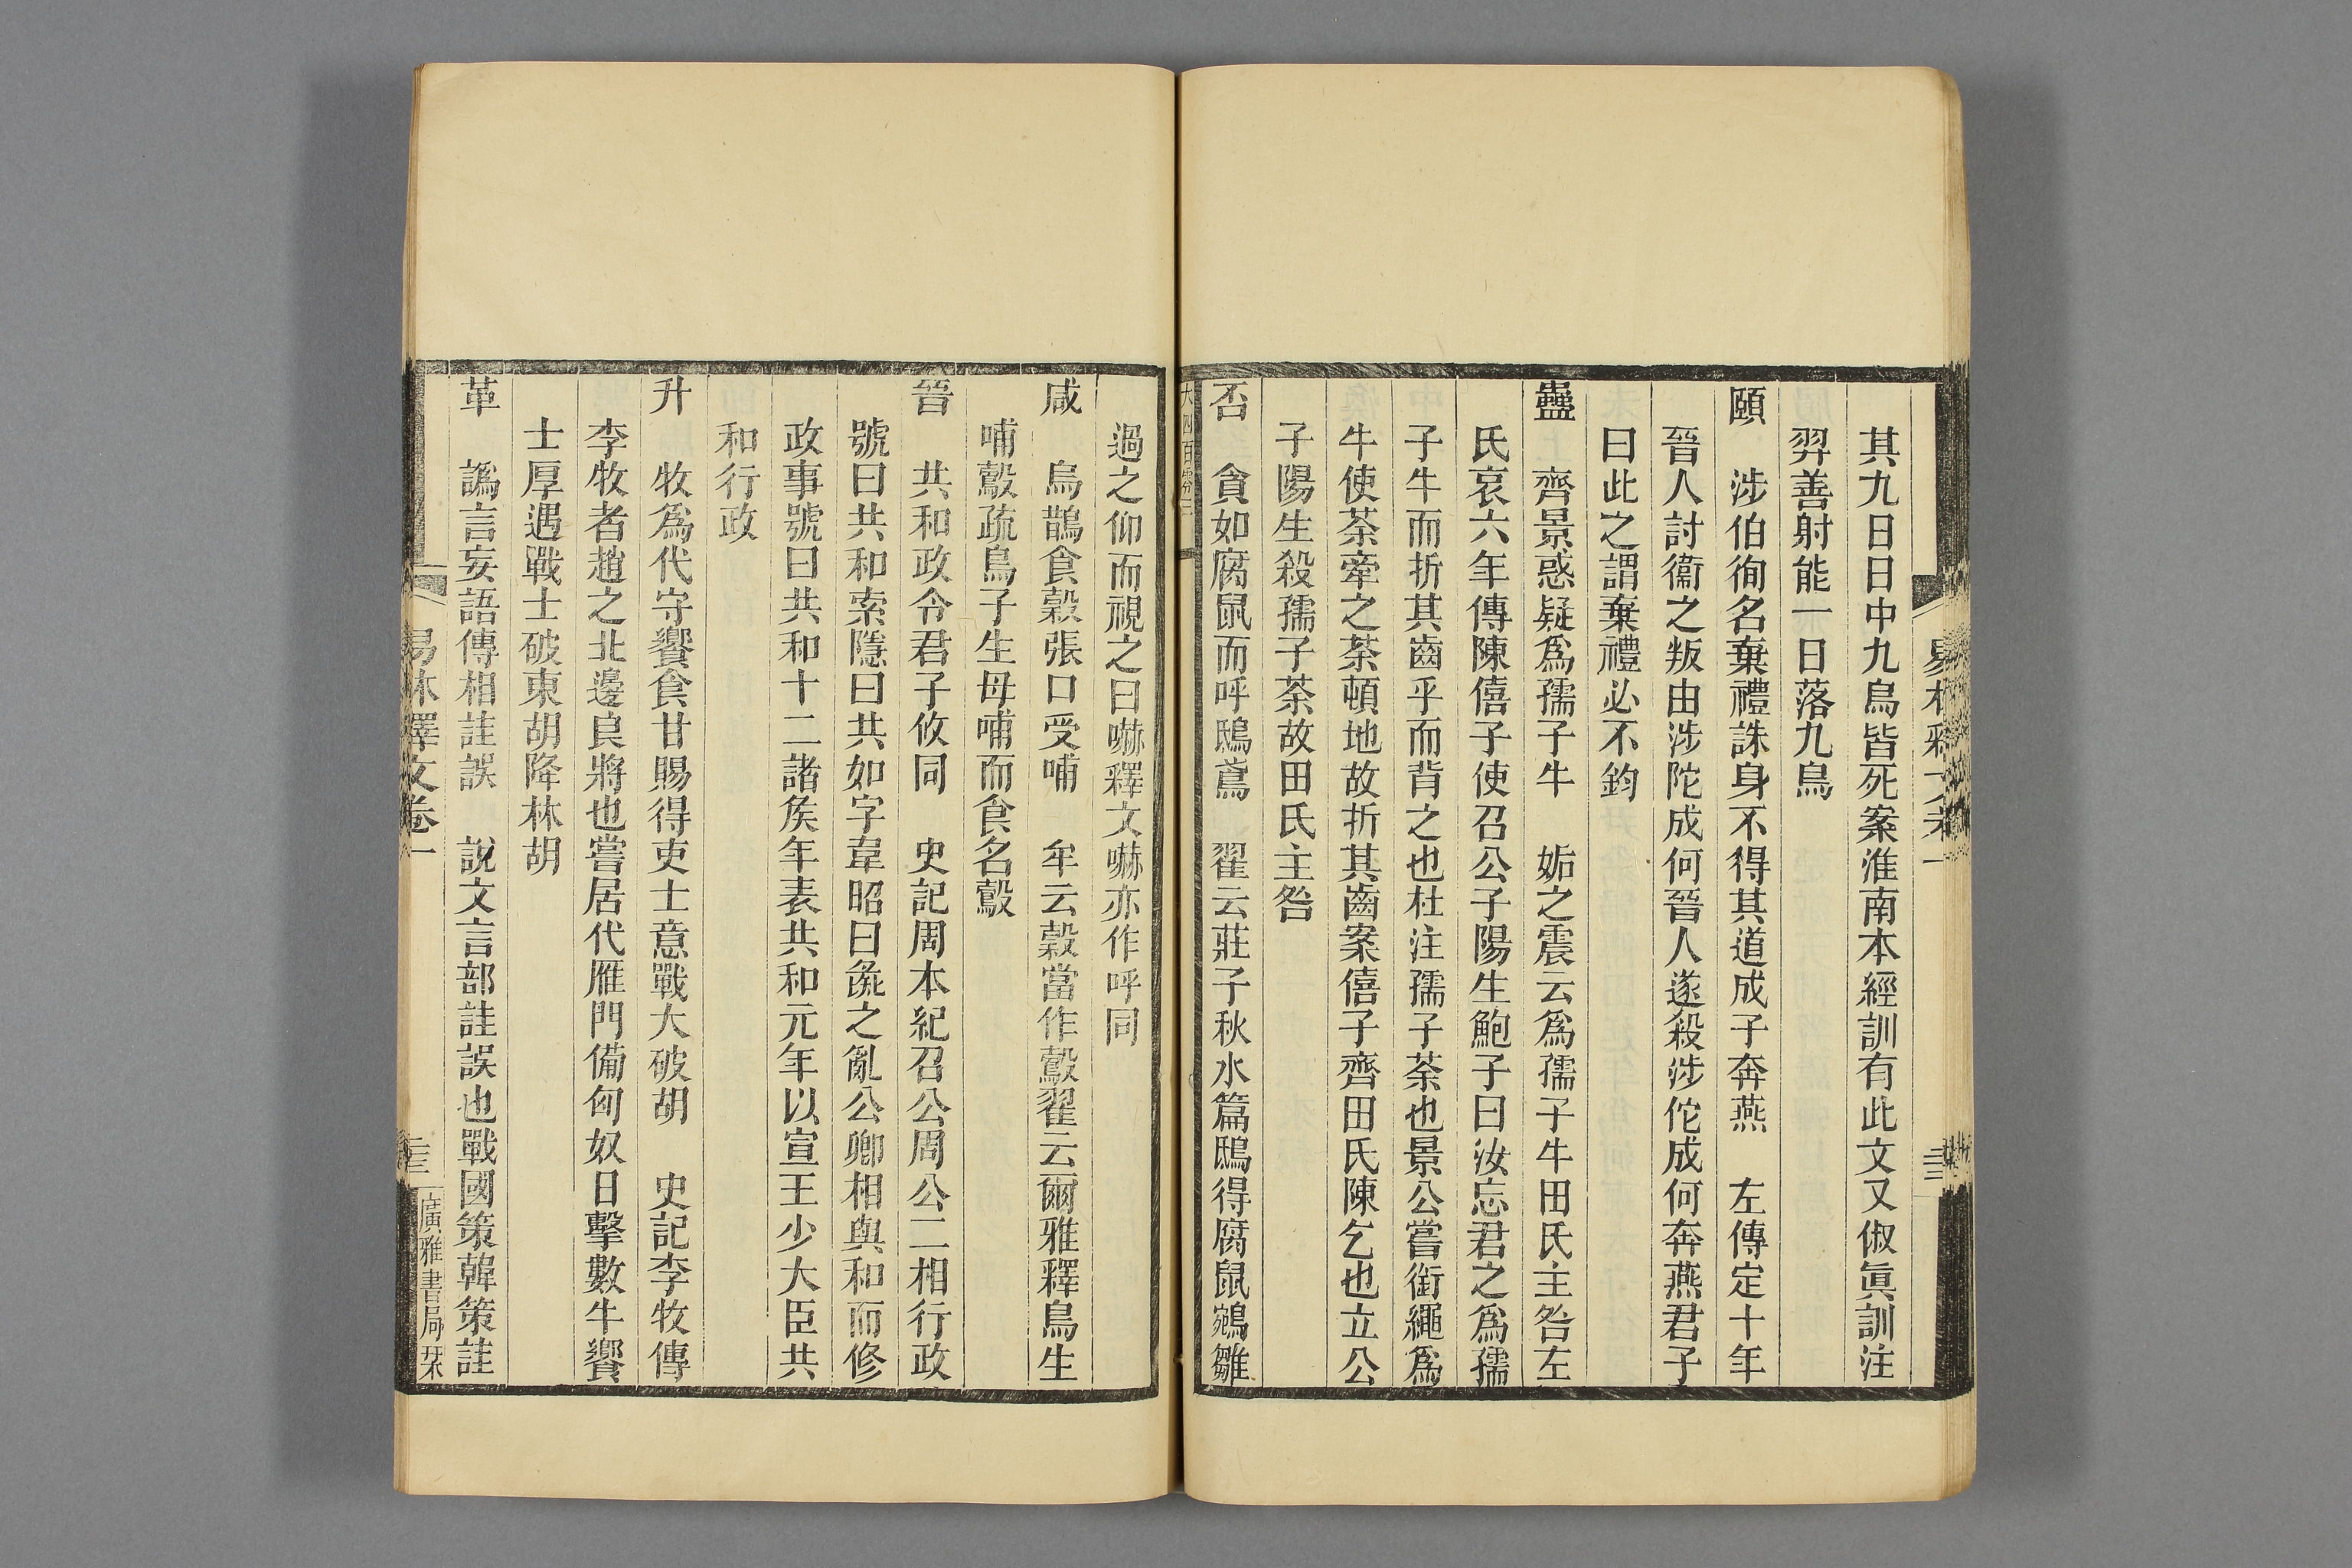 其九日日中九烏皆死案淮南本經訓有此文又俶眞訓注
羿善射能一日落九烏
頤　涉伯徇名棄禮誅身不得其道成子奔燕　左傳定十年
晉人討衞之叛由涉陀成何晉人遂殺涉佗成何奔燕君子
曰此之謂棄禮必不鈞
蠱　齊景惑疑爲孺子牛　姤之震云爲孺子牛田氏主咎左
氏哀六年傳陳僖子使召公子陽生鮑子曰汝忘君之爲孺
子牛而折其齒乎而背之也杜注孺子荼也景公嘗銜繩爲
牛使荼牽之荼頓地故折其齒案僖子齊田氏陳乞也立公
子陽生殺孺子荼故田氏主咎
否　貪如腐鼠而呼鴟鳶　翟云莊子秋水篇鴟得腐鼠鵷雛
過之仰而視之曰嚇釋文嚇亦作呼同
咸　烏鵲食穀張口受哺　牟云穀當作鷇翟云爾雅釋鳥生
哺鷇疏鳥子生母哺而食名鷇
晉　共和政令君子攸同　史記周本紀召公周公二相行政
號曰共和索隱曰共如字韋昭曰彘之亂公卿相與和而修
政事號曰共和十二諸侯年表共和元年以宣王少大臣共
和行政
升　牧爲代守饗食甘賜得吏士意戰大破胡　史記李牧傳
李牧者趙之北邊良將也嘗居代雁門備匈奴日擊數牛饗
士厚遇戰士破東胡降林胡
革　譌言妄語傳相詿誤　說文言部詿誤也戰國策韓策詿
易林釋文卷一
廣雅書局栞